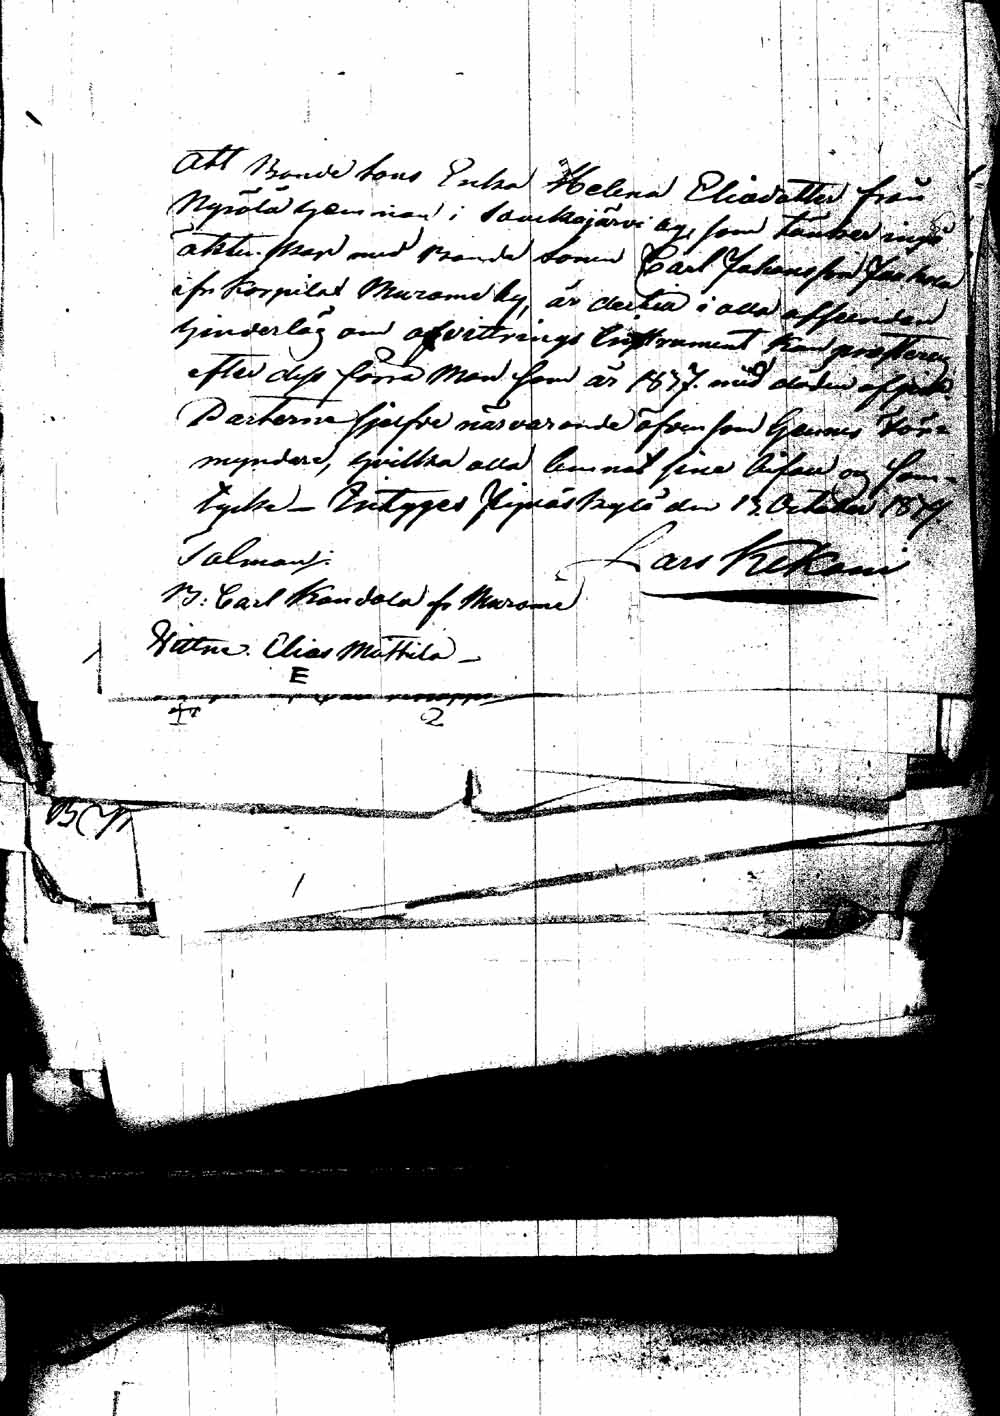 Att Bonde Sons Enka Helena Eliadotter från
Nyrölä hemman i Saukkojärvi by, som tänker ingå
äktenskap med Bonde Sonen Carl Johansson Jaakola
ifr Korpilax Murame by, är dertill i alla afseenden
hinderlös om afvittrings Instrument kan præsteras
efter dess förra Man som år 1837 med döden afgick.
Parterne sjelfve närvarande äfvensom Hennes För-
myndare, hvilka alla lemnat sine bifall og sam-
tycke – Intyges Jyväskylä den 13 October 1837.
Lars Kekoni
Talman:
B: Carl Kandola fr Murame
Vittne. Elias Mattila –
E
2